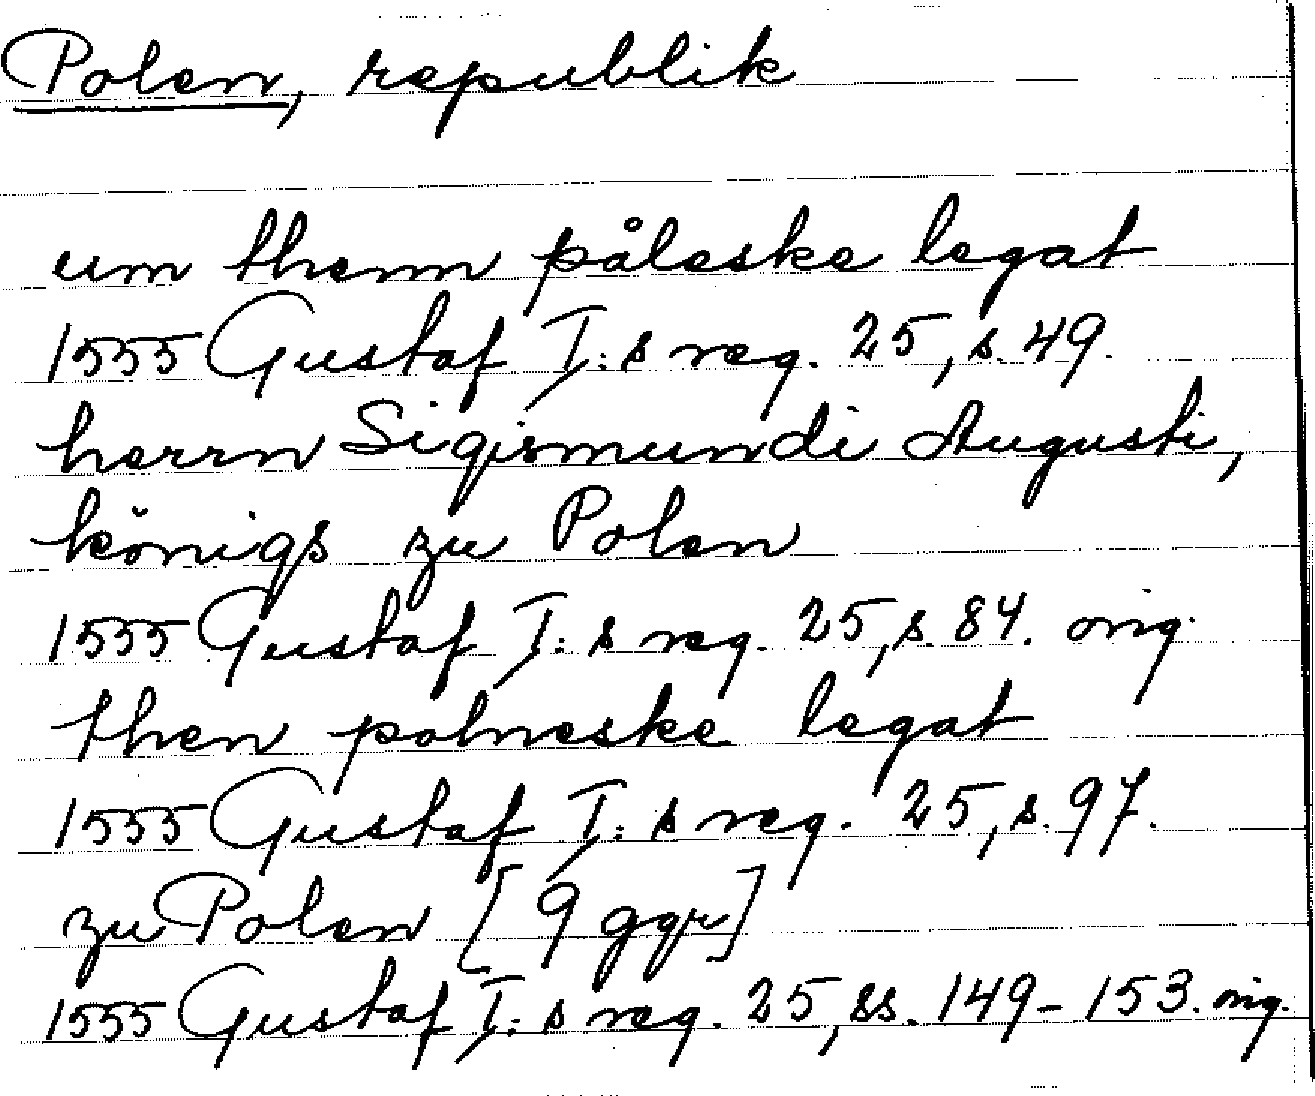 Polen, republik
um thenn påleske legat
1555 Gustaf I:s reg. 25, s. 49.
herrn Sigismundi Augusti,
königs zu Polen
1555 Gustaf I:s reg. 25, s. 84. orig.
then polneske legat
1555 Gustaf I:s reg. 25, s. 97.
zu Polen [9 ggr]
1555 Gustaf I:s reg. 25, ss. 149-153. orig.